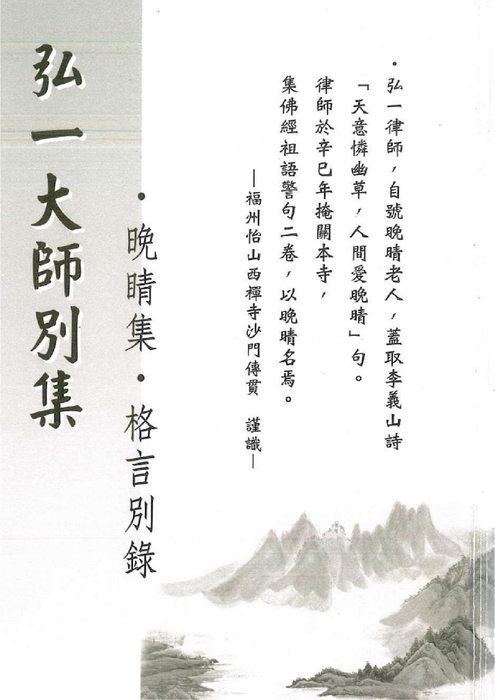 ・弘一律師，自號晚晴老人，蓋取李義山詩
「天意憐幽草，人間愛晚晴」句。
律師於辛巳年掩關本寺，
集佛經祖語警句二卷，以晚晴名焉。
—福州怡山西禪寺沙門傳貫　謹識—
・晚晴集・格言別錄
弘一大師別集